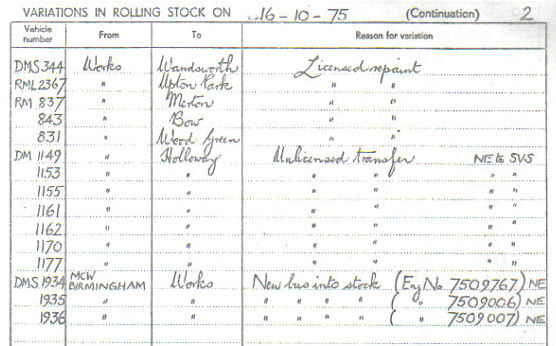 VARIATIONS IN ROLLING STOCK ON 16-10-75 (Continuation) 2
Vehicle number From To Reason for variation
DMS 344 Works Wandsworth Licensed repaint
RML 2367 " Upton Park " "
RM 837 " Merton " "
843 " Bow " "
831 " Wood Green " "
DM 1149 " Holloway Unlicensed transfer NE to SVS
1153 " " " " " "
1155 " " " " " "
1161 " " " " " "
1162 " " " " " "
1170 " " " " " "
1177 " " " " " "
DMS 1934 MCW BIRMINGHAM Works New bus into stock (Eng No 7509767) NE
1935 " " " " " " ( " 7509006) NE
1936 " " " " " " ( " 7509007) NE